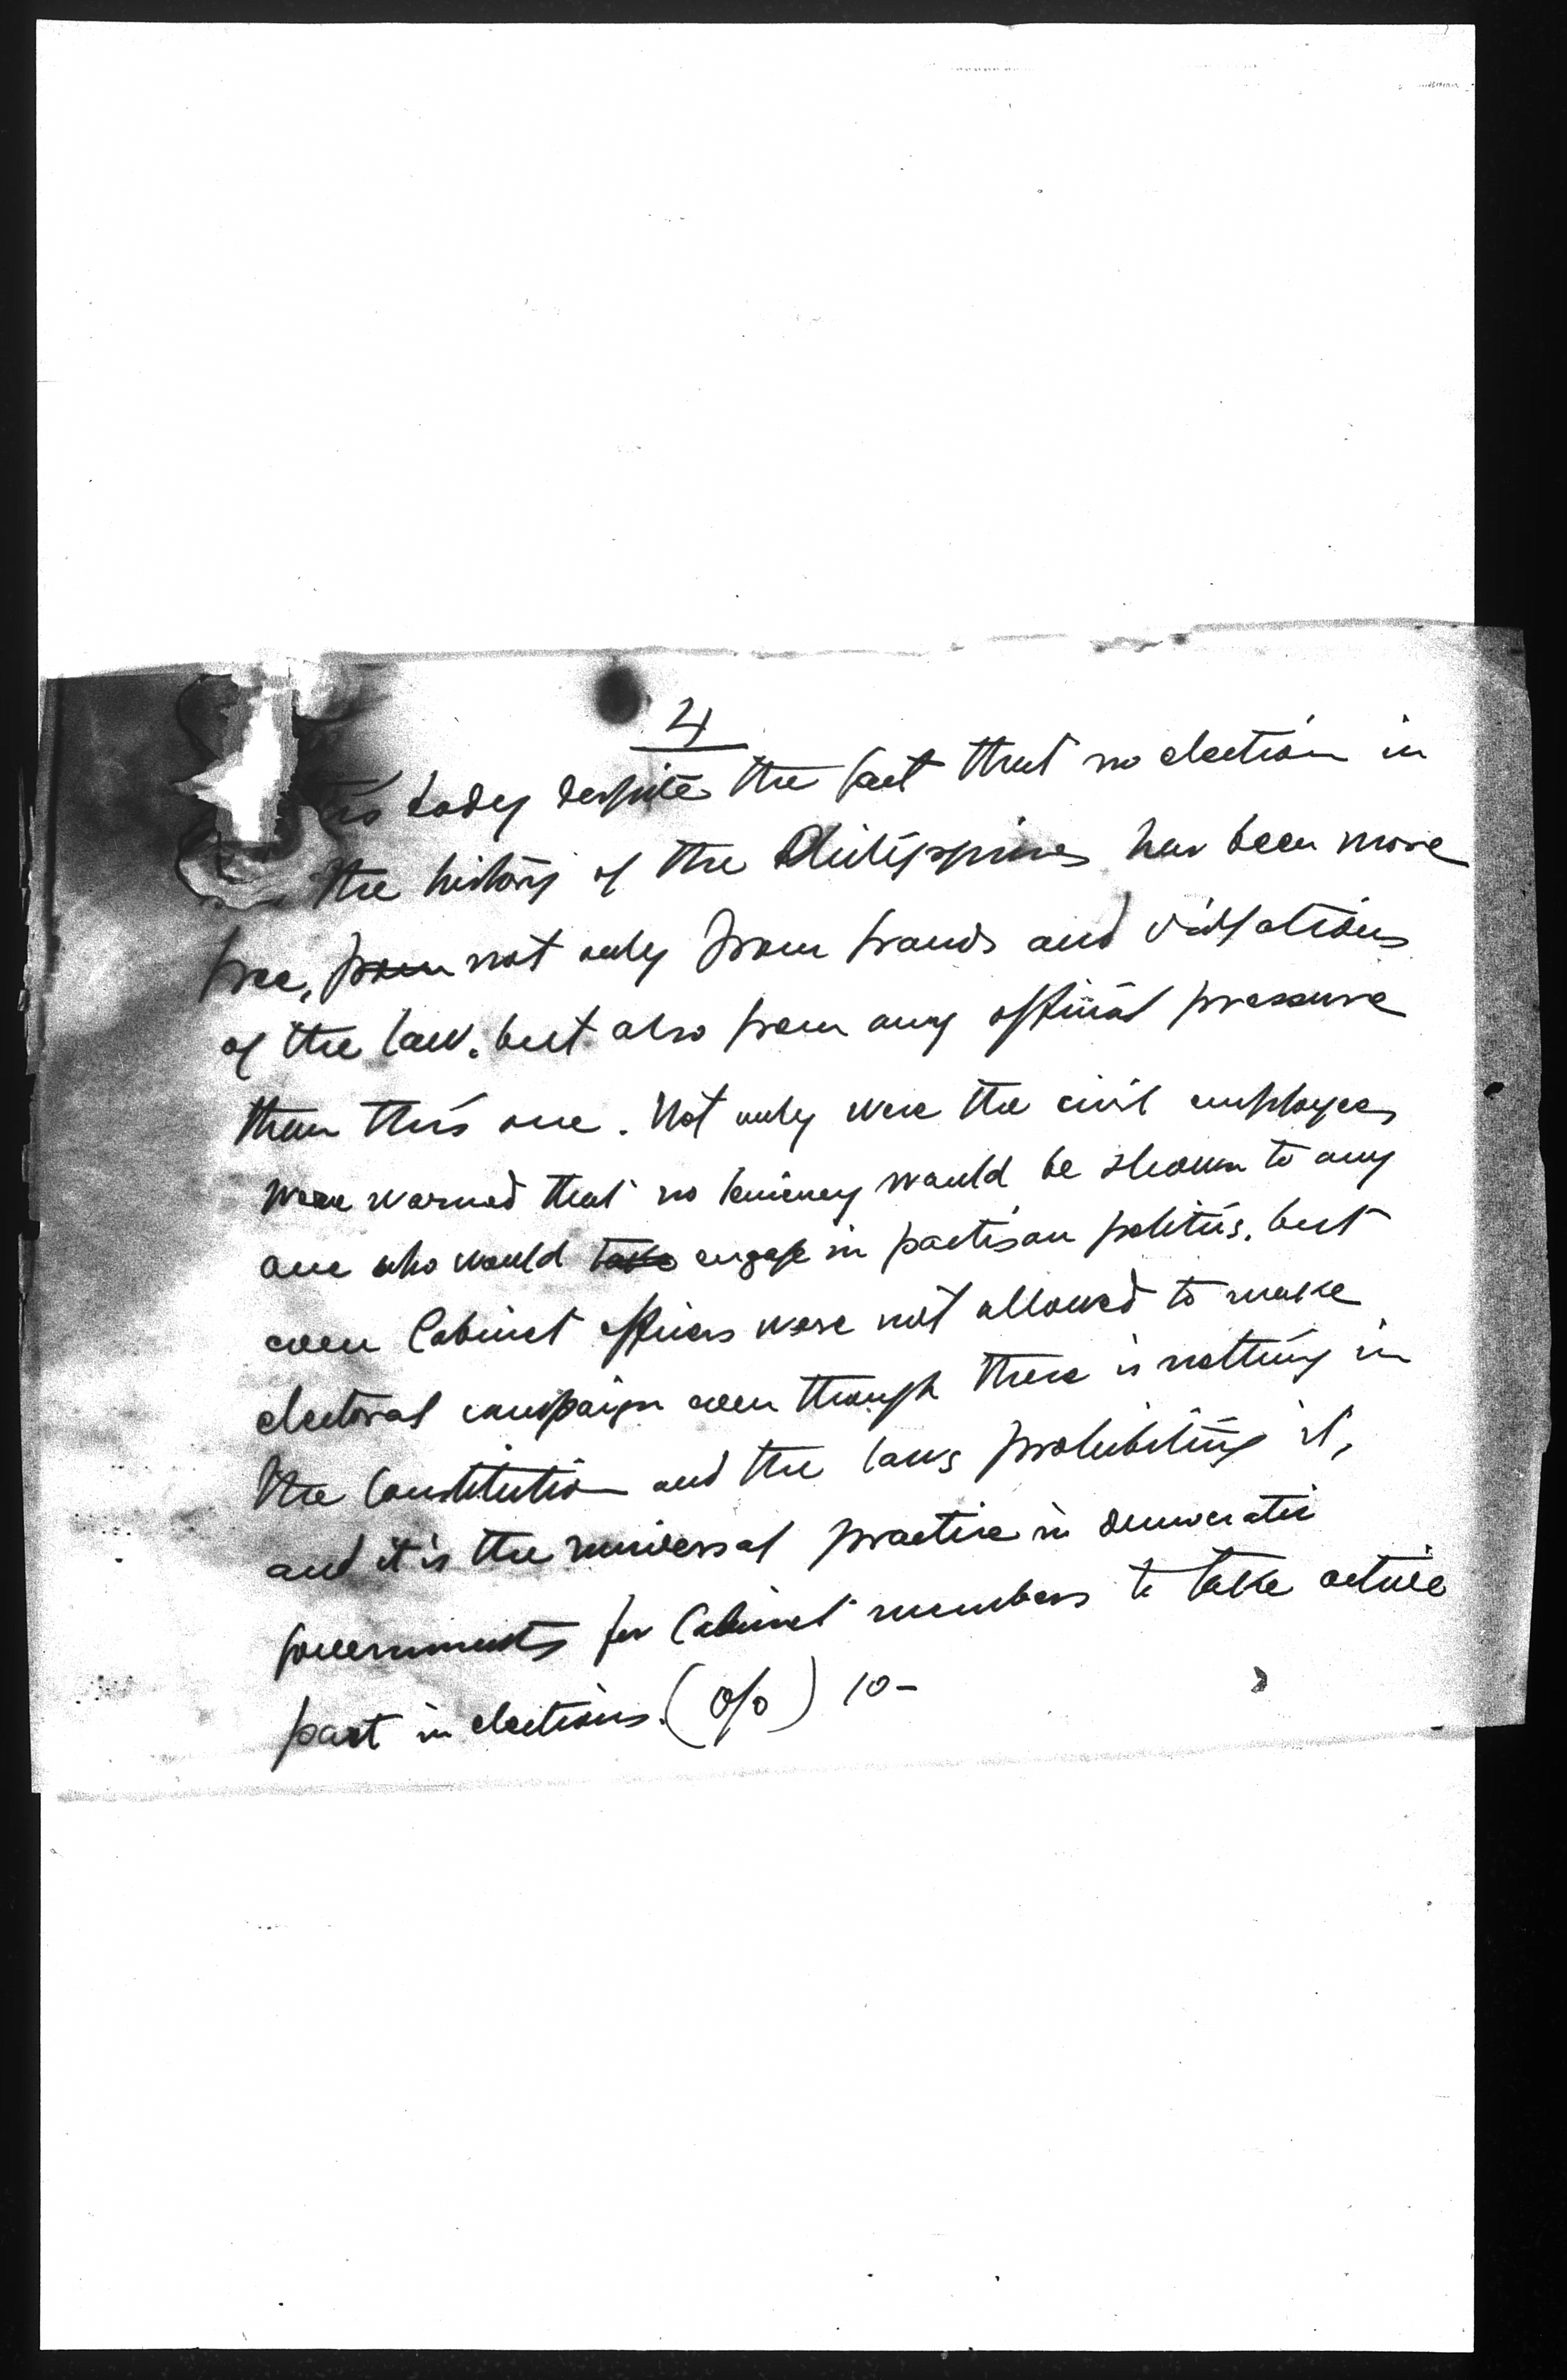 4
is today despite the fact that no election in
the history of the Philippines has been more
free, from not only from frauds and violations
of the law, but also from any official pressure
than this one. Not only were the civil employees
were warned that no leniency would be shown to any
one who would take engage in partisan politics, but
even Cabinet officers were not allowed to make
electoral campaign even though there is nothing in
the Constitution and the laws prohibiting it,
and it is the universal practice in democratic
governments for Cabinet members to take active
part in elections. (o/o) 10-